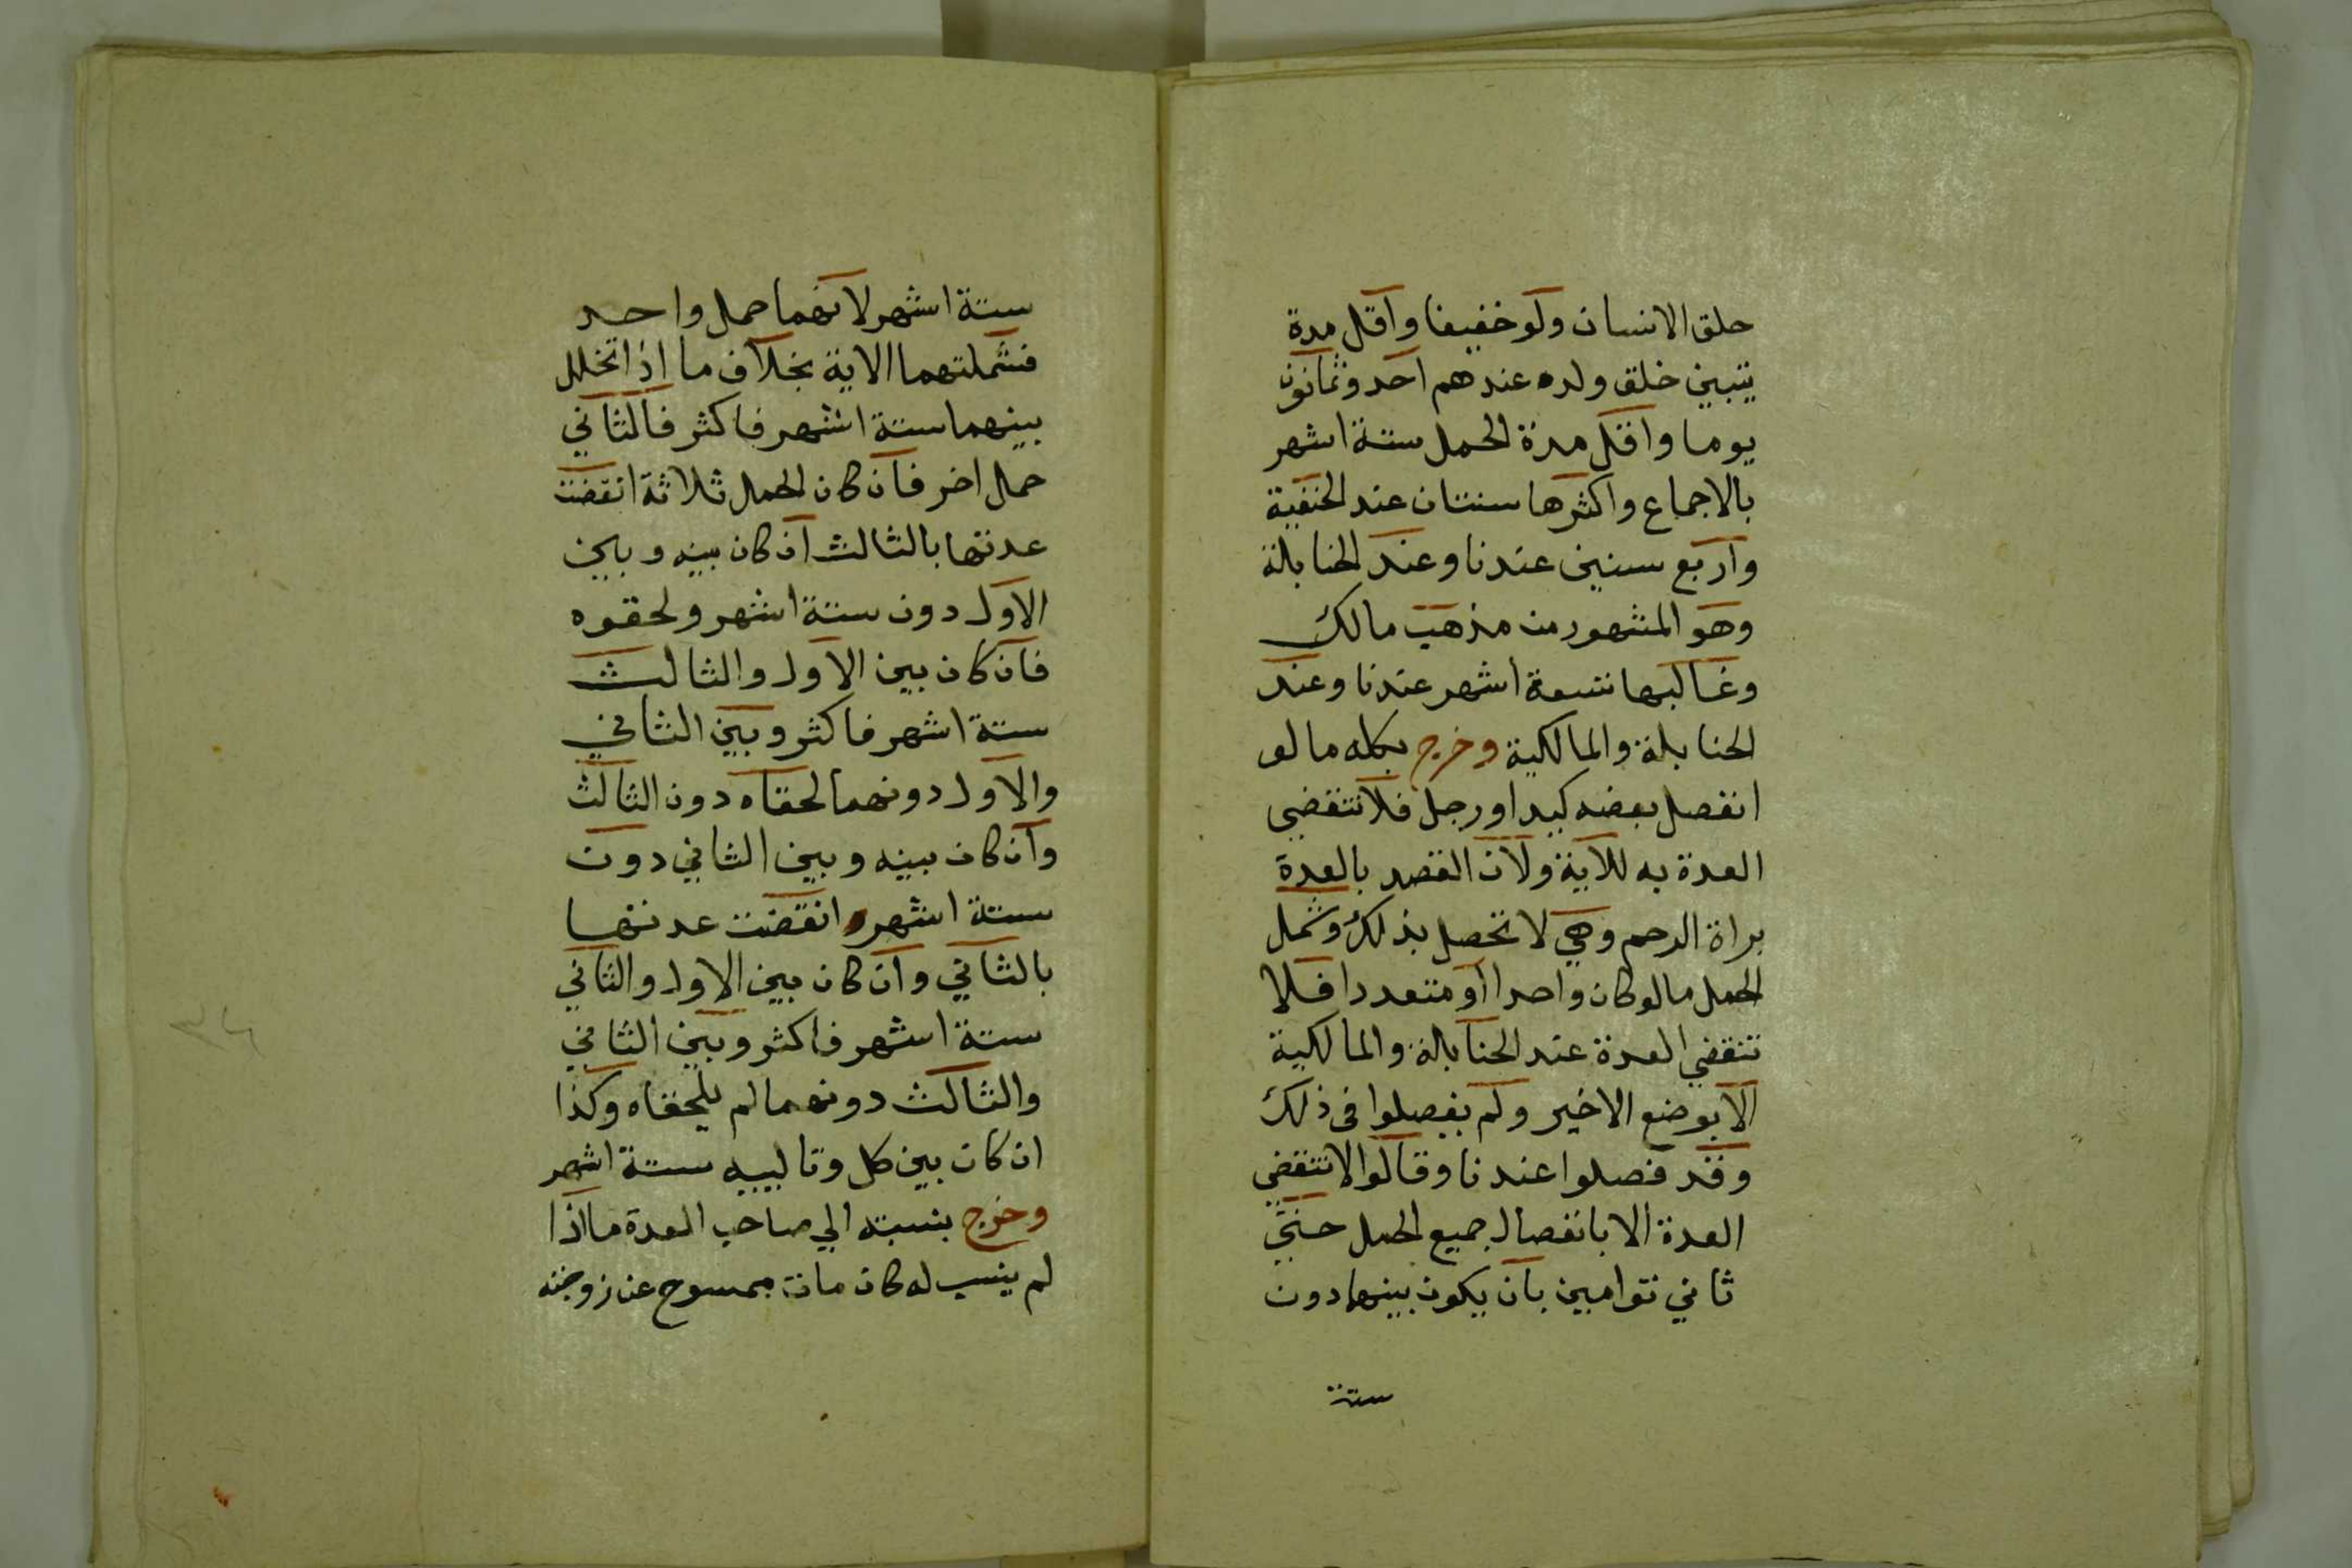 حلق الانسان ولو خفيفا واقل مدة
يتبين خلق ولده عندهم احد وثمانون
يوما واقل مدة الحمل ستة اشهر
بالاجماع واكثرها سنتان عند الحنفية
واربع سنين عندنا وعند الحنابلة
وهو المشهور من مذهب مالك
وغالبها تسعة اشهر عندنا وعند
الحنابلة والمالكية وخرج بكله ما لو
انفصل بعضه كيد او رجل فلا تنقضي
العدة به للاية ولان القصد بالعدة
براة الرحم وهي لا تحصل بذلك وشمل
الحمل ما لو كان واحدا او متعددا فلا
تنقضي العدة عند الحنابلة والمالكية
الا بوضع الاخير ولم يفصلوا في ذلك
وقد فصلوا عندنا وقالوا لا تنقضي
العدة الا بانفصال جميع الحمل حتى
ثاني توامين بان يكون بينهما دون
ستة
ستة اشهر لانهما حمل واحد
فشملتهما الاية بخلاف ما اذا تخلل
بينهما ستة اشهر فاكثر فالثاني
حمل اخر فان كان الحمل ثلاثة انقضت
عدتها بالثالث ان كان بينه وبين
الاول دون ستة اشهر ولحقوه
فان كان بين الاول والثالث
ستة اشهر فاكثر وبين الثاني
والاول دونهما لحقاه دون الثالث
وان كان بينه وبين الثاني دون
ستة اشهر انقضت عدتها
بالثاني وان كان بين الاول والثاني
ستة اشهر فاكثر وبين الثاني
والثالث دونهما لم يلحقاه وكذا
ان كان بين كل وتالييه ستة اشهر
وخرج بنسبته الي صاحب العدة ما اذا
لم ينسب له كان مات ممسوح عن زوجته